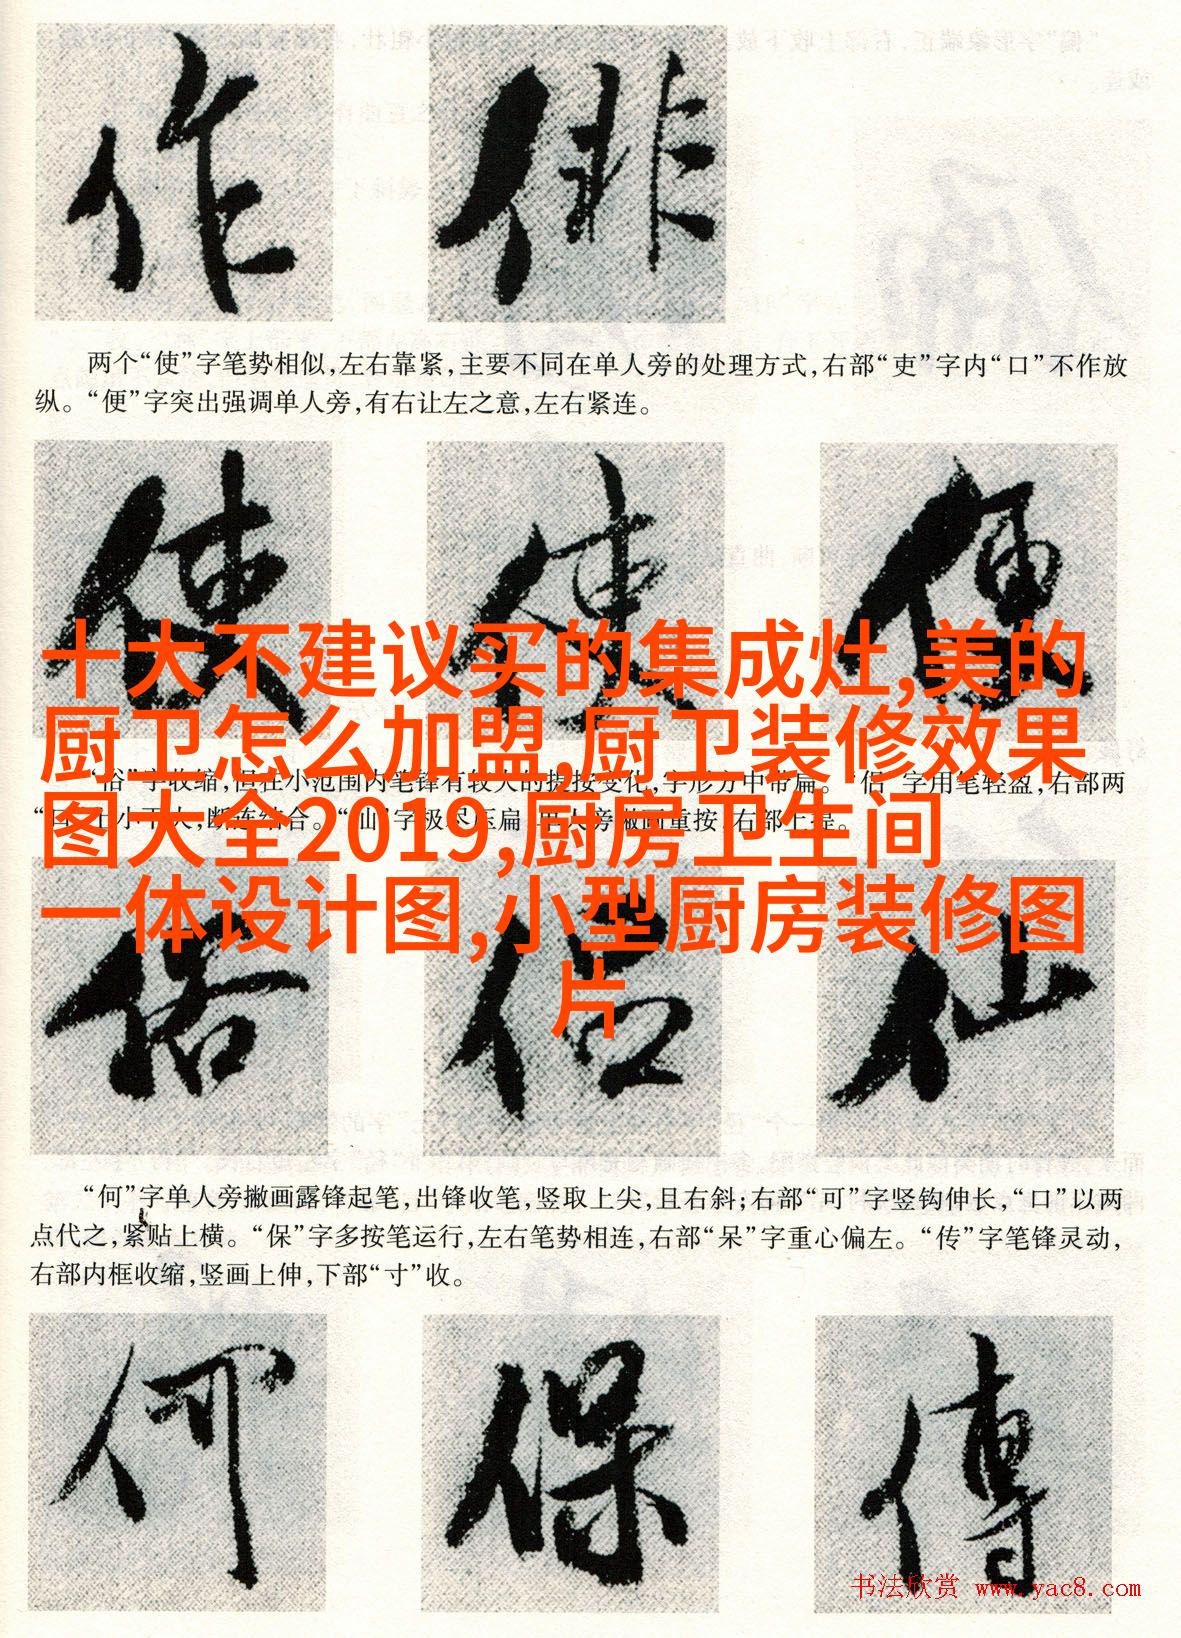 作 俳
两个“使”字笔势相似,左右靠紧,主要不同在单人旁的处理方式,右部“吏”字内“口”不作放
纵。“便”字突出强调单人旁,有右让左之意,左右紧连。
使 使 便
十大不建议买的集成灶,美的
厨卫怎么加盟,厨卫装修效果
图大全2019,厨房卫生间
一体设计图,小型厨房装修图
片
“俗”字收缩,但在小范围内笔锋有较大的提按变化,字形方中带扁。“侣”字用笔轻盈,右部两
字极尽压扁,单人旁撇画重按,右部上提。
俗 侣 仙
“何”字单人旁撇画露锋起笔,出锋收笔,竖取上尖,且右斜;右部“可”字竖钩伸长,“口”以两
点代之,紧贴上横。“保”字多按笔运行,左右笔势相连,右部“呆”字重心偏左。“传”字笔锋灵动,
右部内框收缩,竖画上伸,下部“寸”收。
何 保 傳
书法欣赏 www.yac8.com